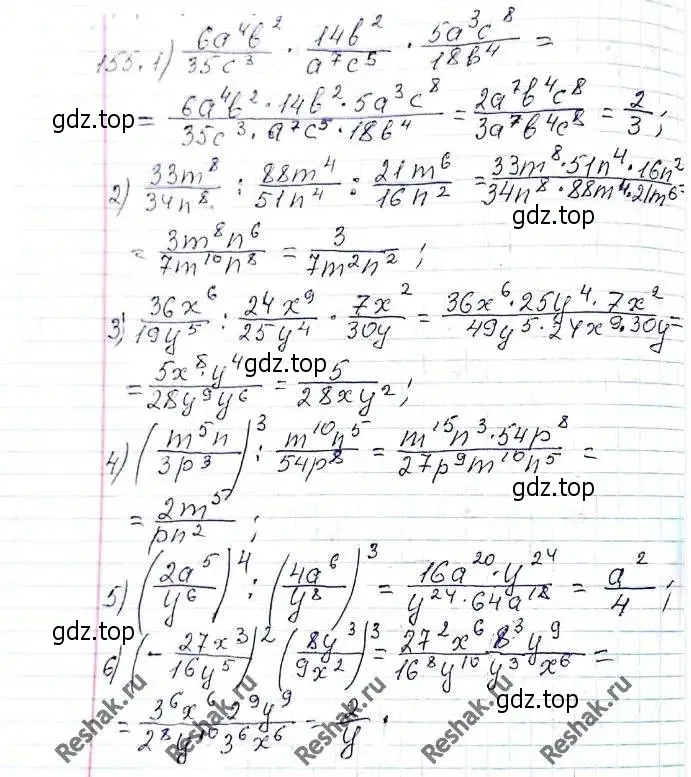 155.1) \frac{6a^4b^2}{35c^3} \cdot \frac{14b^2}{a^7c^5} \cdot \frac{5a^3c^8}{18b^4} =
= \frac{6a^4b^2 \cdot 14b^2 \cdot 5a^3c^8}{35c^3 \cdot a^7c^5 \cdot 18b^4} = \frac{2a^7b^4c^8}{3a^7b^4c^8} = \frac{2}{3};
gdz.top
gdz.top
2) \frac{33m^8}{34n^8} : \frac{88m^4}{51n^4} : \frac{21m^6}{16n^2} = \frac{33m^8 \cdot 51n^4 \cdot 16n^2}{34n^8 \cdot 88m^4 \cdot 21m^6} =
gdz.top
= \frac{3m^8n^6}{7m^{10}n^8} = \frac{3}{7m^2n^2};
gdz.top
3) \frac{36x^6}{19y^5} : \frac{24x^9}{25y^4} \cdot \frac{7x^2}{30y} = \frac{36x^6 \cdot 25y^4 \cdot 7x^2}{49y^5 \cdot 24x^9 \cdot 30y} =
= \frac{5x^8 \cdot y^4}{28y^9y^6} = \frac{5}{28xy^2};
gdz.top
4) \left(\frac{m^5n}{3p^3}\right)^3 : \frac{m^{10}n^5}{54p^8} = \frac{m^{15}n^3 \cdot 54p^8}{27p^9m^{10}n^5} =
gdz.top
gdz.top
= \frac{2m^5}{pn^2};
5) \left(\frac{2a^5}{y^6}\right)^4 : \left(\frac{4a^6}{y^8}\right)^3 = \frac{16a^{20} \cdot y^{24}}{y^{24} \cdot 64a^{18}} = \frac{a^2}{4};
gdz.top
gdz.top
6) \left(-\frac{27x^3}{16y^5}\right)^2 \left(\frac{8y^3}{9x^2}\right)^3 = \frac{27^2x^6 8^3y^9}{16^8y^{10} y^3x^6} =
gdz.top
= \frac{3^6x^6 2^9y^9}{2^8y^{10} 3^6x^6} = \frac{2}{y}.
gdz.top
Reshak.ru
Reshak.ru
Reshak.ru
Reshak.ru